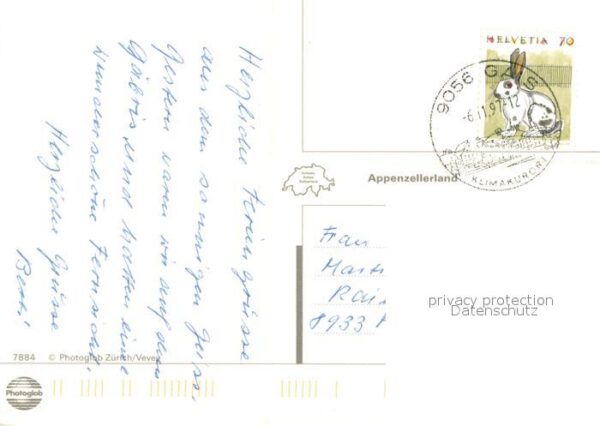 Herzliche Feriengrüsse
aus dem sonnigen Gais.
Gestern waren wir auf dem
Gäbris und hatten eine
wunderschöne Fernsicht.
Herzliche Grüsse
HELVETIA 70
9056 GAIS
-6.11.97-12
KLIMAKURORT
Appenzellerland
Frau
8933
privacy protection
Datenschutz
7884 © Photoglob Zürich/Vevey
Photoglob